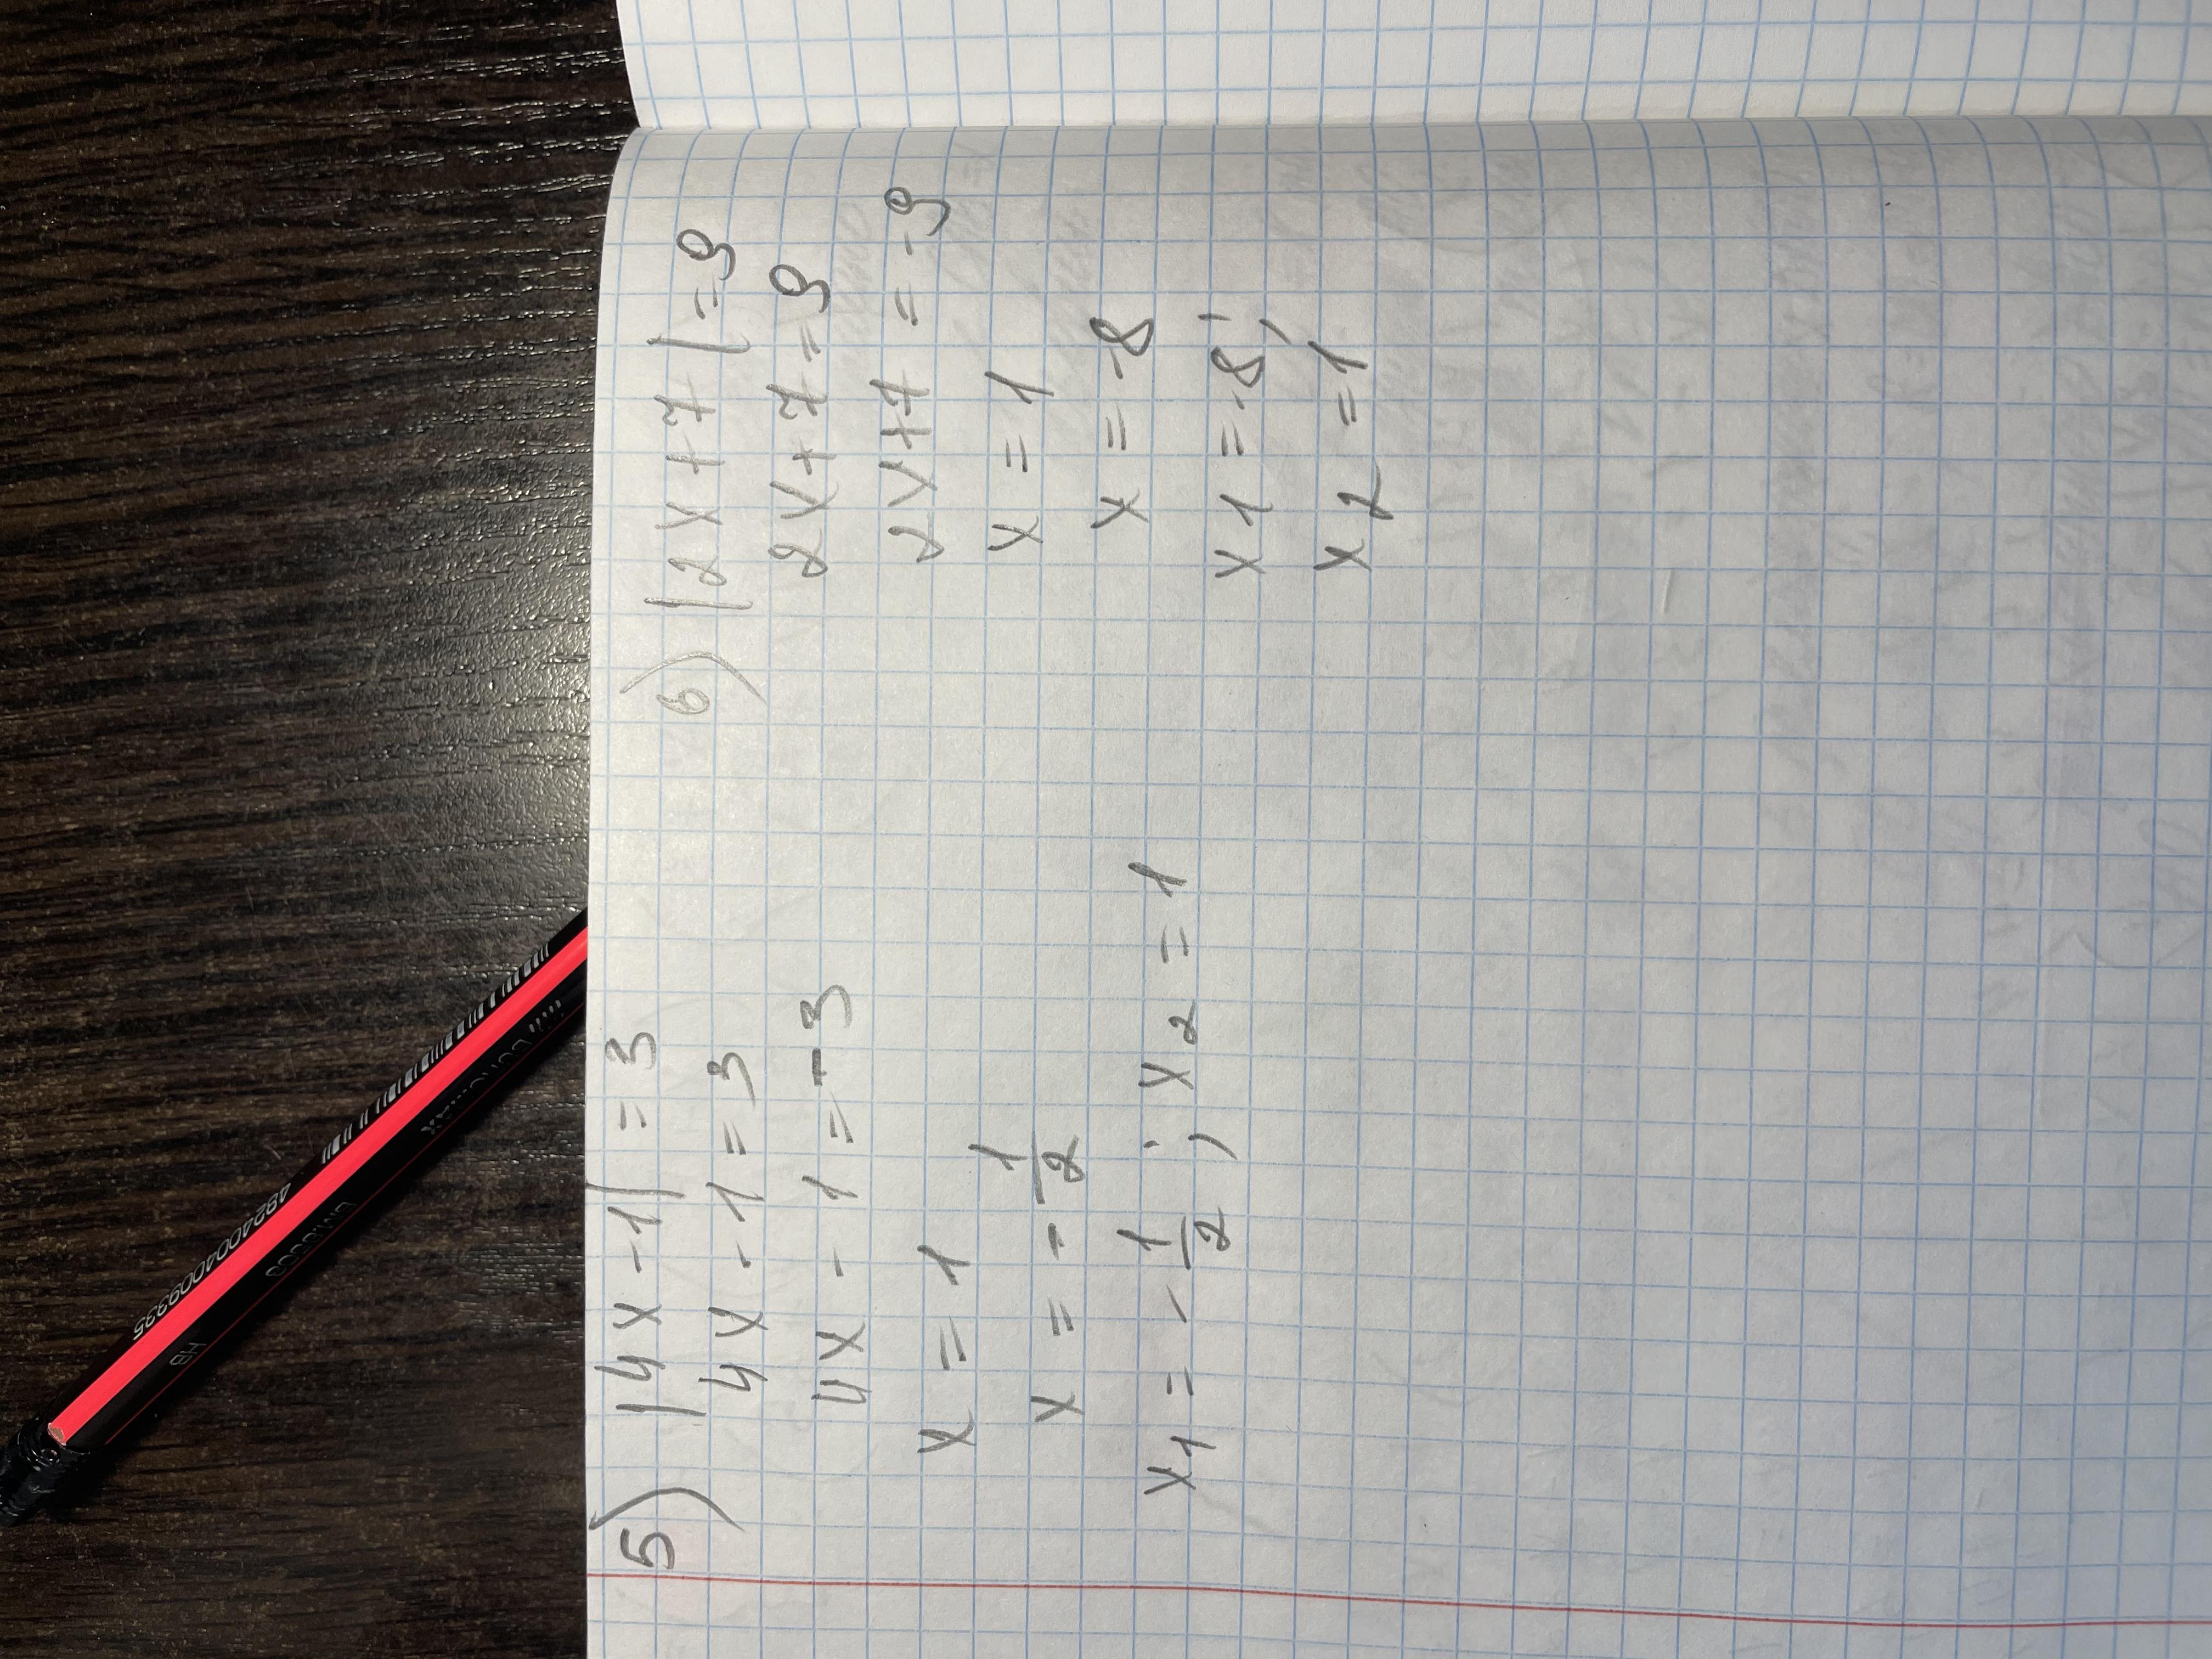 5) |4x - 1| = 3
4x - 1 = 3
4x - 1 = -3
x = 1
x = - 1/2
x1 = - 1/2 ; x2 = 1
6) |2x + 7| = 9
2x + 7 = 9
2x + 7 = -9
x = 1
x = -8
x1 = -8;
x2 = 1
4824004009335
HB